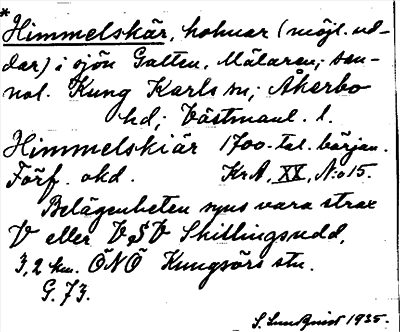 *
Himmelskär, holmar (möjl. ud-
dar) i sjön Galten, Mälaren; san-
nol. Kung Karls sn; Åkerbo
hd; Västmanl. l.
Himmelskiär 1700-tal. början.
Förf. okd. KrA, XX, No 15.
Belägenheten syns vara strax
V eller VSV Skillingsudd,
3,2 km. ÖNÖ Kungsörs stn.
G. 73.
S. Lundquist 1935.